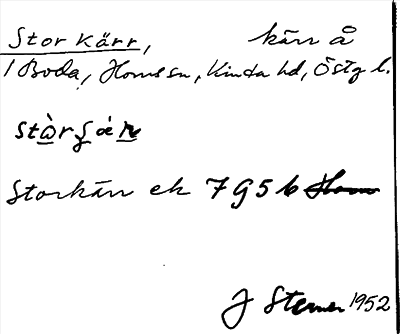 Storkärr, kärr å
1 Boda, Hornssn, Kinda hd, Östg l.
Storkärr ek 7 G 5 b
J Sterner 1952